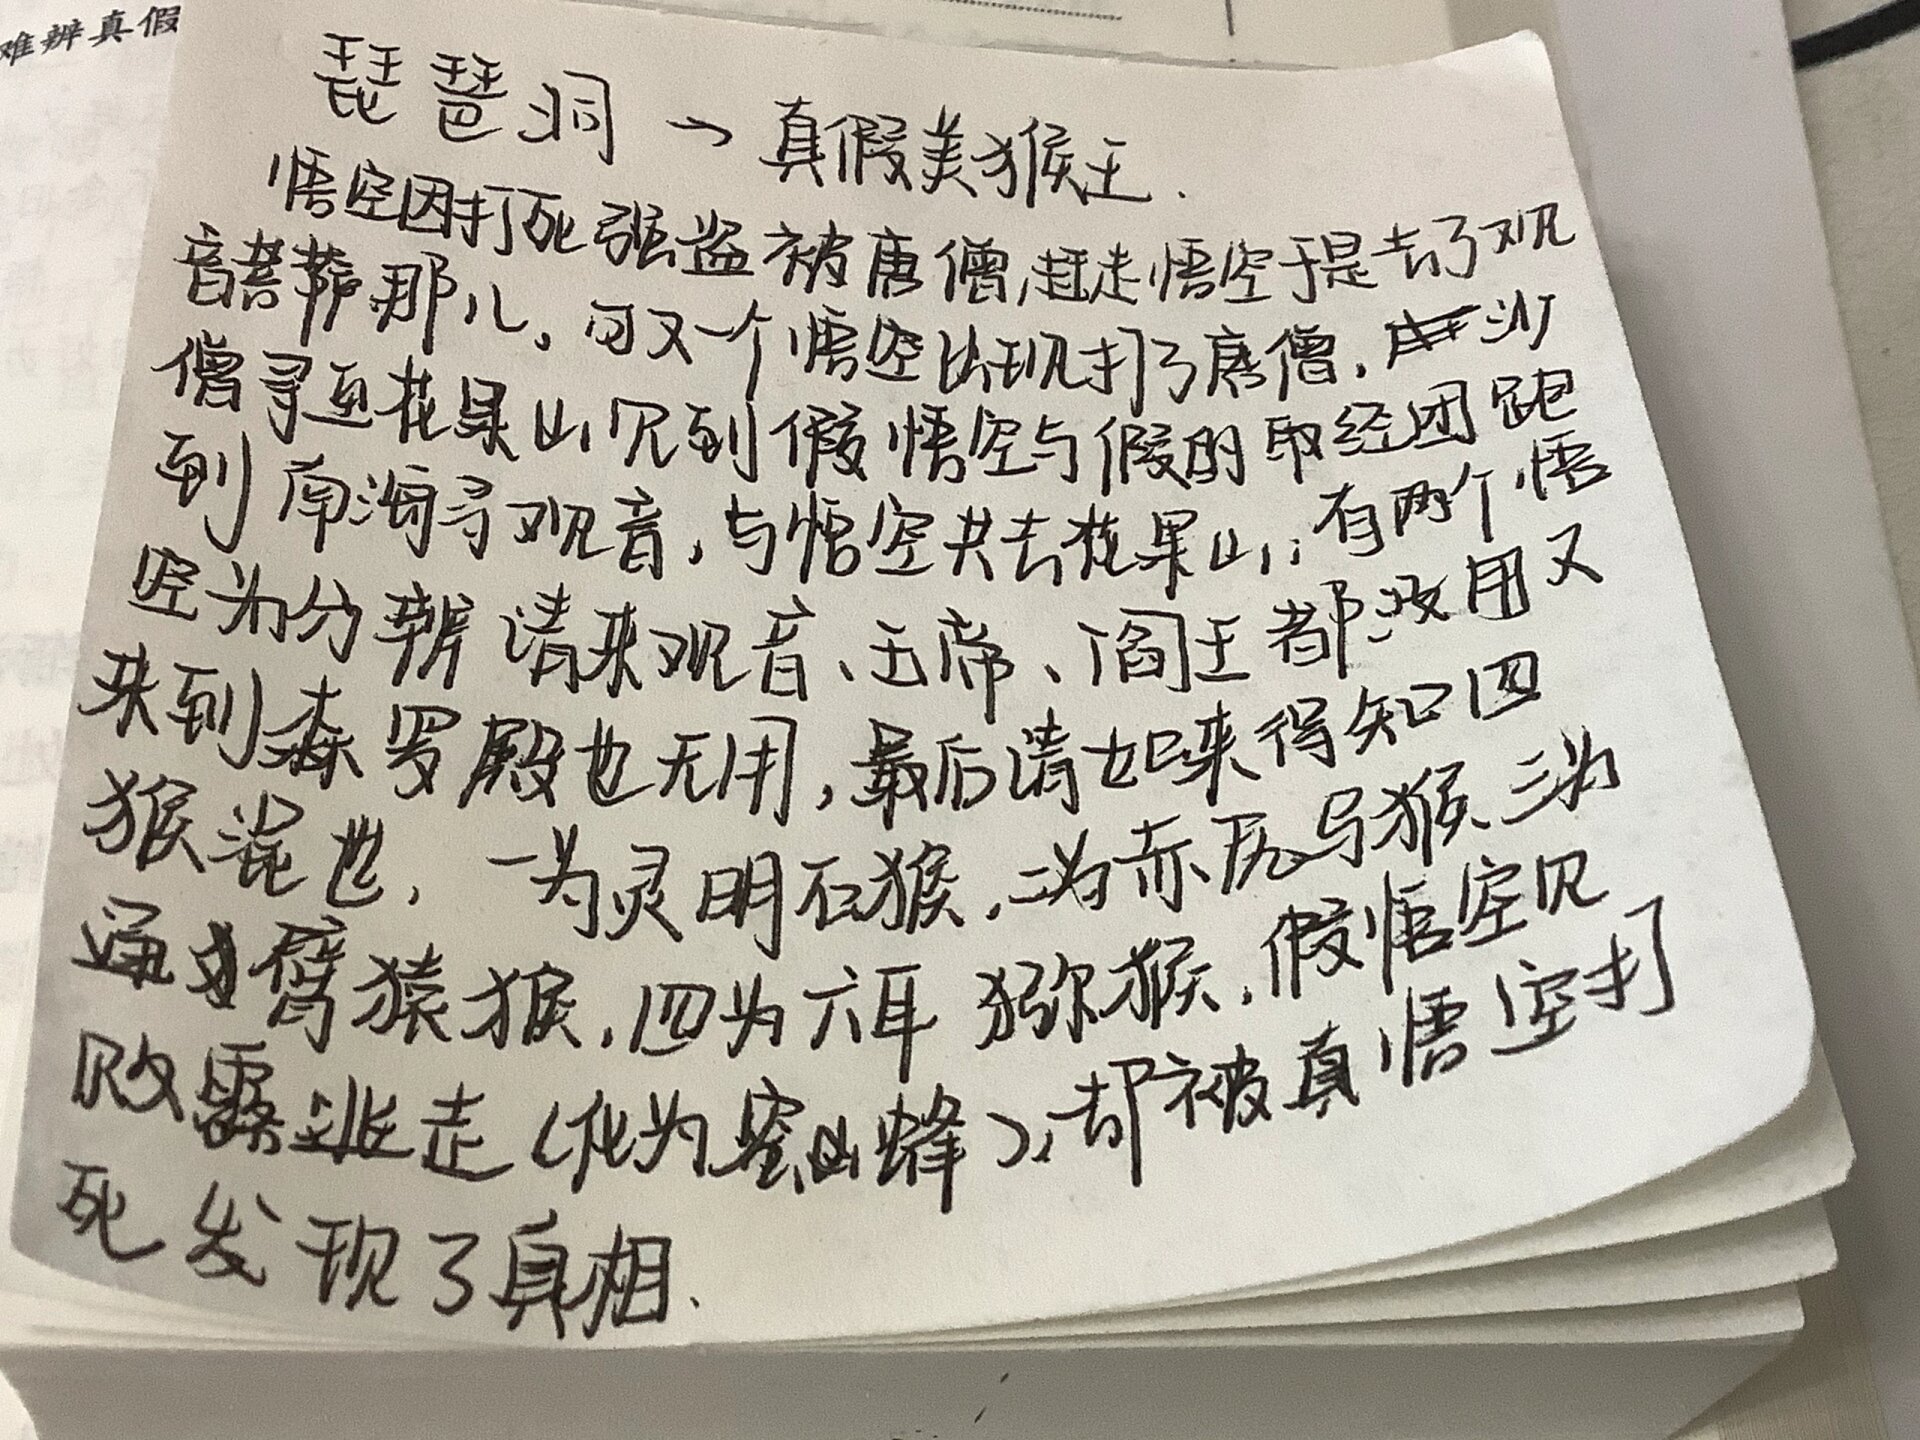 难辨真假
琵琶洞→真假美猴王.
悟空因打死强盗被唐僧赶走悟空于是去了观
音菩萨那儿,可又一个悟空出现打了唐僧,沙
僧寻至花果山见到假悟空与假的取经团跑
到南海寻观音,与悟空共去花果山;有两个悟
空为分辨请来观音、玉帝、阎王都没用又
来到森罗殿也无用,最后请如来得知四
猴混世,一为灵明石猴,二为赤尻马猴、三为
通臂猿猴,四为六耳猕猴,假悟空见
败露逃走(化为蜜蜂),却被真悟空打
死发现了真相.